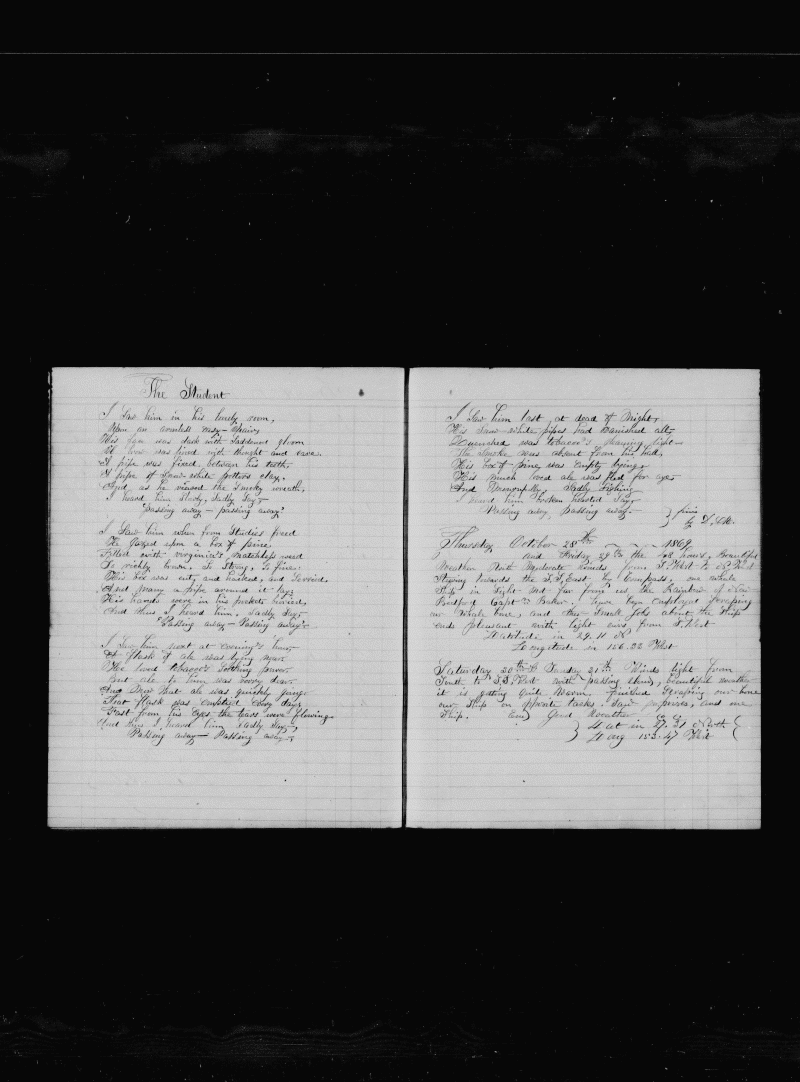 The Student
I Saw him in his lonely room,
Upon an armless easy-chair,
His face was dark with saddened gloom
His brow was lined with thought and care.
A pipe was fixed between his teeth,
A pipe of snow-white potters clay,
And as he viewed the smoky wreath,
I heard him slowly, sadly say—
"Passing away—passing away"
I Saw him when from Studies freed
He gazed upon a box of pine
Filled with virginia's matchless weed
So richly brown, so strong, so fine.
His box was cut, and hacked, and
And many a pipe around it lay,
His hands were in his pockets
And thus I heard him, sadly say—
"Passing away—Passing away"
I Saw him next at evening's hour,
A flask of ale was lying near
He loved tobacco's soothing power
But ale to him was very dear
And Soon that ale was quickly gone
That flask was emptied every day
Fast from his eyes the tears were flowing
And thus I heard him sadly say—
Passing away—Passing away—
I Saw him last, at dead of Night,
His snow-white pipes had vanished all—
Quenched was tobacco's flaming light
The smoke was absent from his
His box of pine, was empty lying
His much loved ale was fled for aye
And Sadly Sighing
I heard him broken hearted Say
Passing away, passing away—
finis
Thursday, October 28th 1869
and Friday 29th the 48 hours, Beautiful
Weather With Moderate Winds from S.West to W.West
Stearing towards the S.S.East, by Compass, one whale
Ship in Sight not far from us the Rainbow of New
Bedford Capt Baker. have been employed scraping
our Whale bone, and other Small jobs about the Ship
ends pleasant with light airs from S.West
Latitude in 29.11 N
Longitude in 156.22 West
Saturday 30th & Sunday 31th Winds light from
South to S.S.West with passing clouds, beautiful weather
it is getting quite Warm. finished Scraping our bone
our Ship on opposite tacks, saw porpoises, and one
Ship. End Good Weather
Lat in 27.31 North
Long 153.47 West